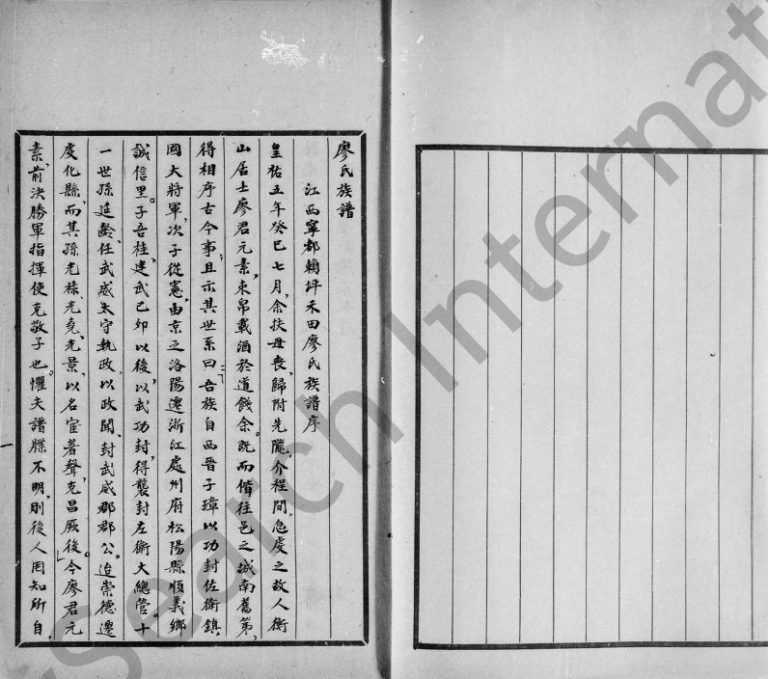 廖氏族譜
江西寧都賴坪禾田廖氏族譜序
皇祐五年癸巳七月，余扶母喪，歸附先隴，介程間，急虔之故人衡
山居士廖君元素，束帛載酒於道餞余。既而偕往邑之城南舊第，
得相序古今事且示其世系曰吾族自西晉子璋以功封佐衛鎮
國大將軍，次子從憲，由京之洛陽遷浙江處州府松陽縣順義鄉
誠信里。子吾桂，建武己卯以後，以武功封，得襲封左衛大總管。十
一世孫延齡，任武威太守執政，以政聞，封武威郡郡公。迨崇德遷
虔化縣，而其孫光祿、光堯、光景，以名宦著聲，克昌厥後。今廖君元
素，前決勝軍指揮使克敬子也。懼夫譜牒不明，則後人罔知所自，
search Internat